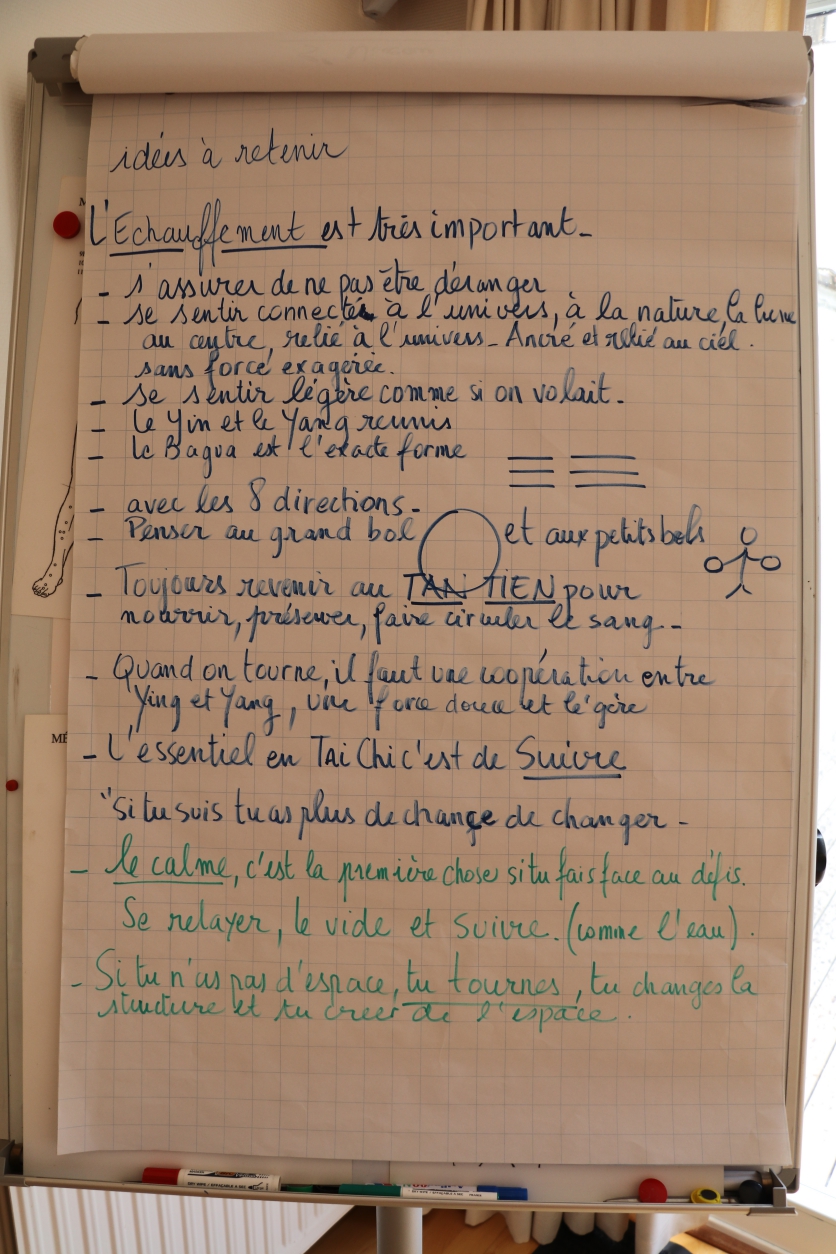 idées à retenir
L'Echauffement est très important_
- s'assurer de ne pas être déranger
- se sentir connectés à l'univers, à la nature, la lune
au centre, relié à l'univers - Ancré et relié au ciel.
sans force exagérée.
- se sentir légère comme si on volait.
- le Yin et le Yang reunis
- le Bagua est l'exacte forme
- avec les 8 directions_
- Penser au grand bol et aux petits bols
- Toujours revenir au TAN TIEN pour
nourrir, préserver, faire circuler le sang_
- Quand on tourne, il faut une coopération entre
Ying et Yang, une force douce et légère
- L'essentiel en Tai Chi c'est de Suivre
"Si tu suis tu as plus de chançe de changer -
- le calme, c'est la première chose si tu fais face au défis.
Se relayer, le vide et suivre. (comme l'eau).
- Si tu n'as pas d'espace, tu tournes, tu changes la
structure et tu creer de l'espace.